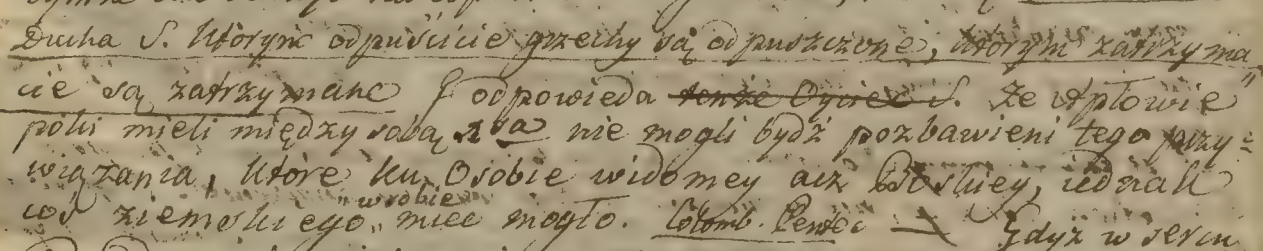 Ducha S. Którym odpuścicie grzechy są odpuszczone, którym zatrzyma
cie są zatrzymane odpowieda tenże Oyciec S. że Apłowie
póki mieli między sobą nie mogli bydź pozbawieni tego przy=
wiązania, które ku Osobie widomey acz Boskiey, iednak
w sobie
coś ziemskiego mieć mogło. Colomb. Gdyż w sercu